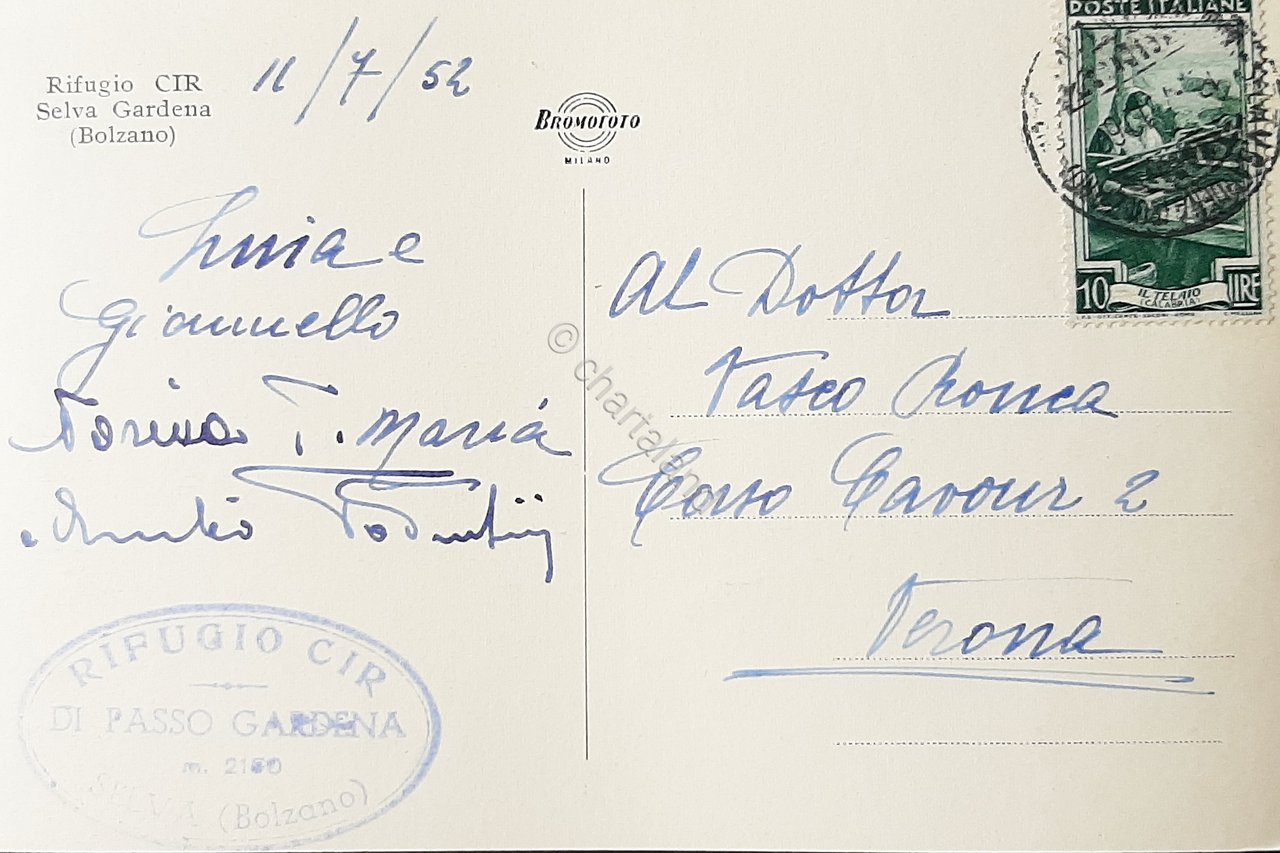 Rifugio CIR
Selva Gardena
(Bolzano)
11/7/52
BROMOFOTO
MILANO
POSTE ITALIANE
10 LIRE
IL TELAIO
(CALABRIA)
e
Giannello
T. Maria
Al Dottor
Vasco Ronca
Corso Cavour 2
Verona
RIFUGIO CIR
DI PASSO GARDENA
m.
SELVA (Bolzano)